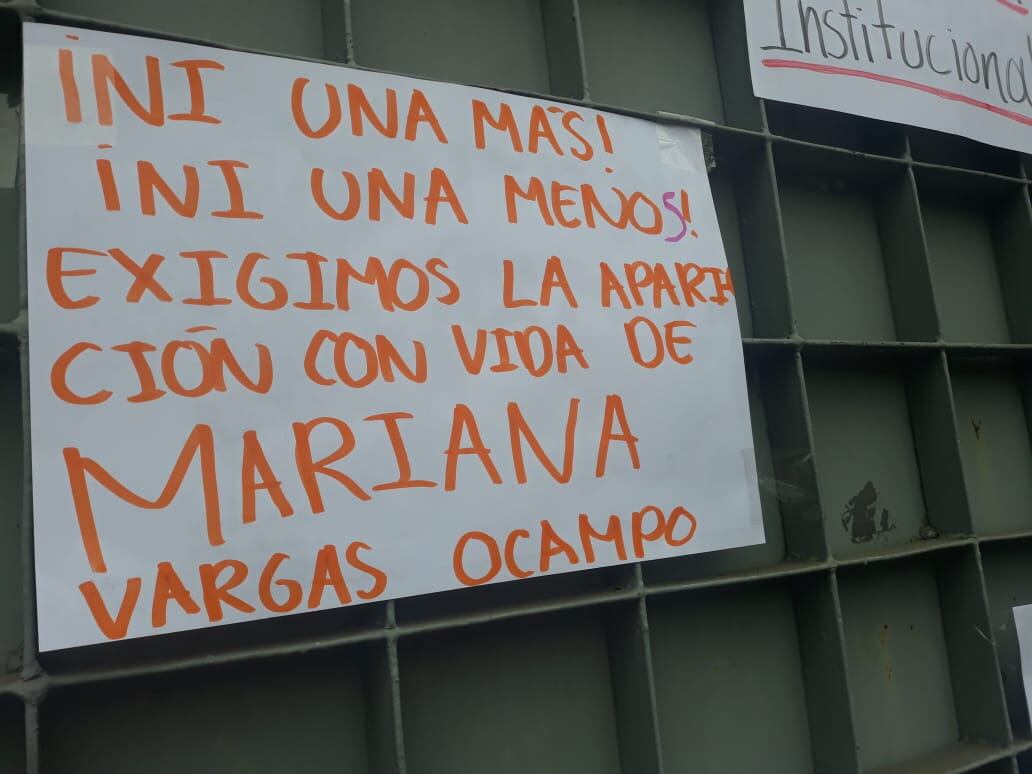 ¡NI UNA MÁS!
¡NI UNA MENOS!
EXIGIMOS LA APARI-
CIÓN CON VIDA DE
MARIANA
VARGAS OCAMPO
Institucional